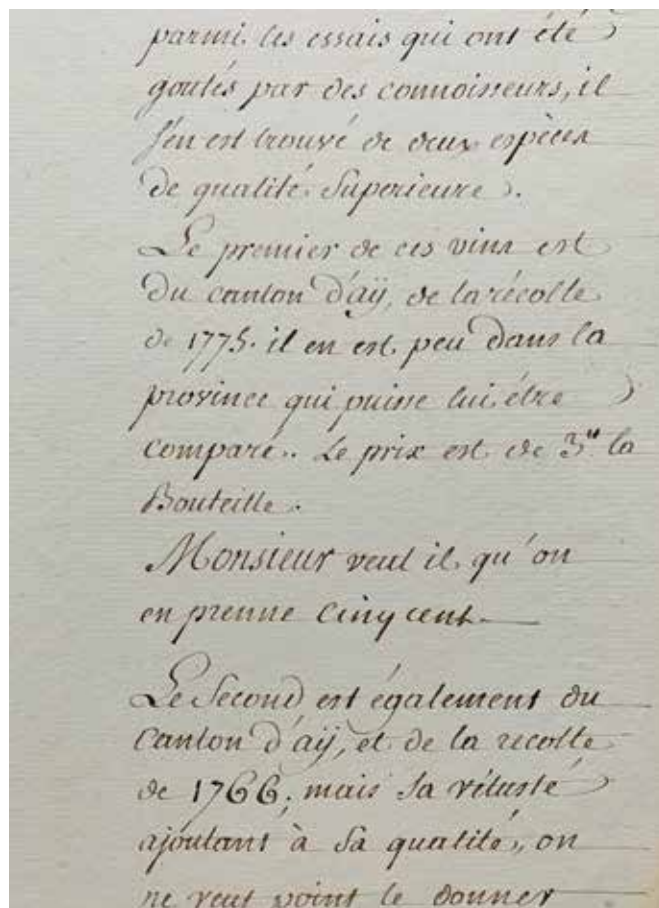 parmi les essais qui ont été
goutés par des connoisseurs, il
s'en est trouvé de deux espèces
de qualité Superieure.
Le premier de ces vins est
du canton d'aÿ, de la récolte
de 1775. il en est peu dans la
province qui puisse lui être
comparé. Le prix est de 3ᵗᵗ la
Bouteille.
Monsieur veut il qu'on
en prenne Cinq cent.
Le Second est également du
Canton d'aÿ, et de la recolte
de 1766, mais sa vétusté
ajoutant à Sa qualité, on
ne veut point le donner